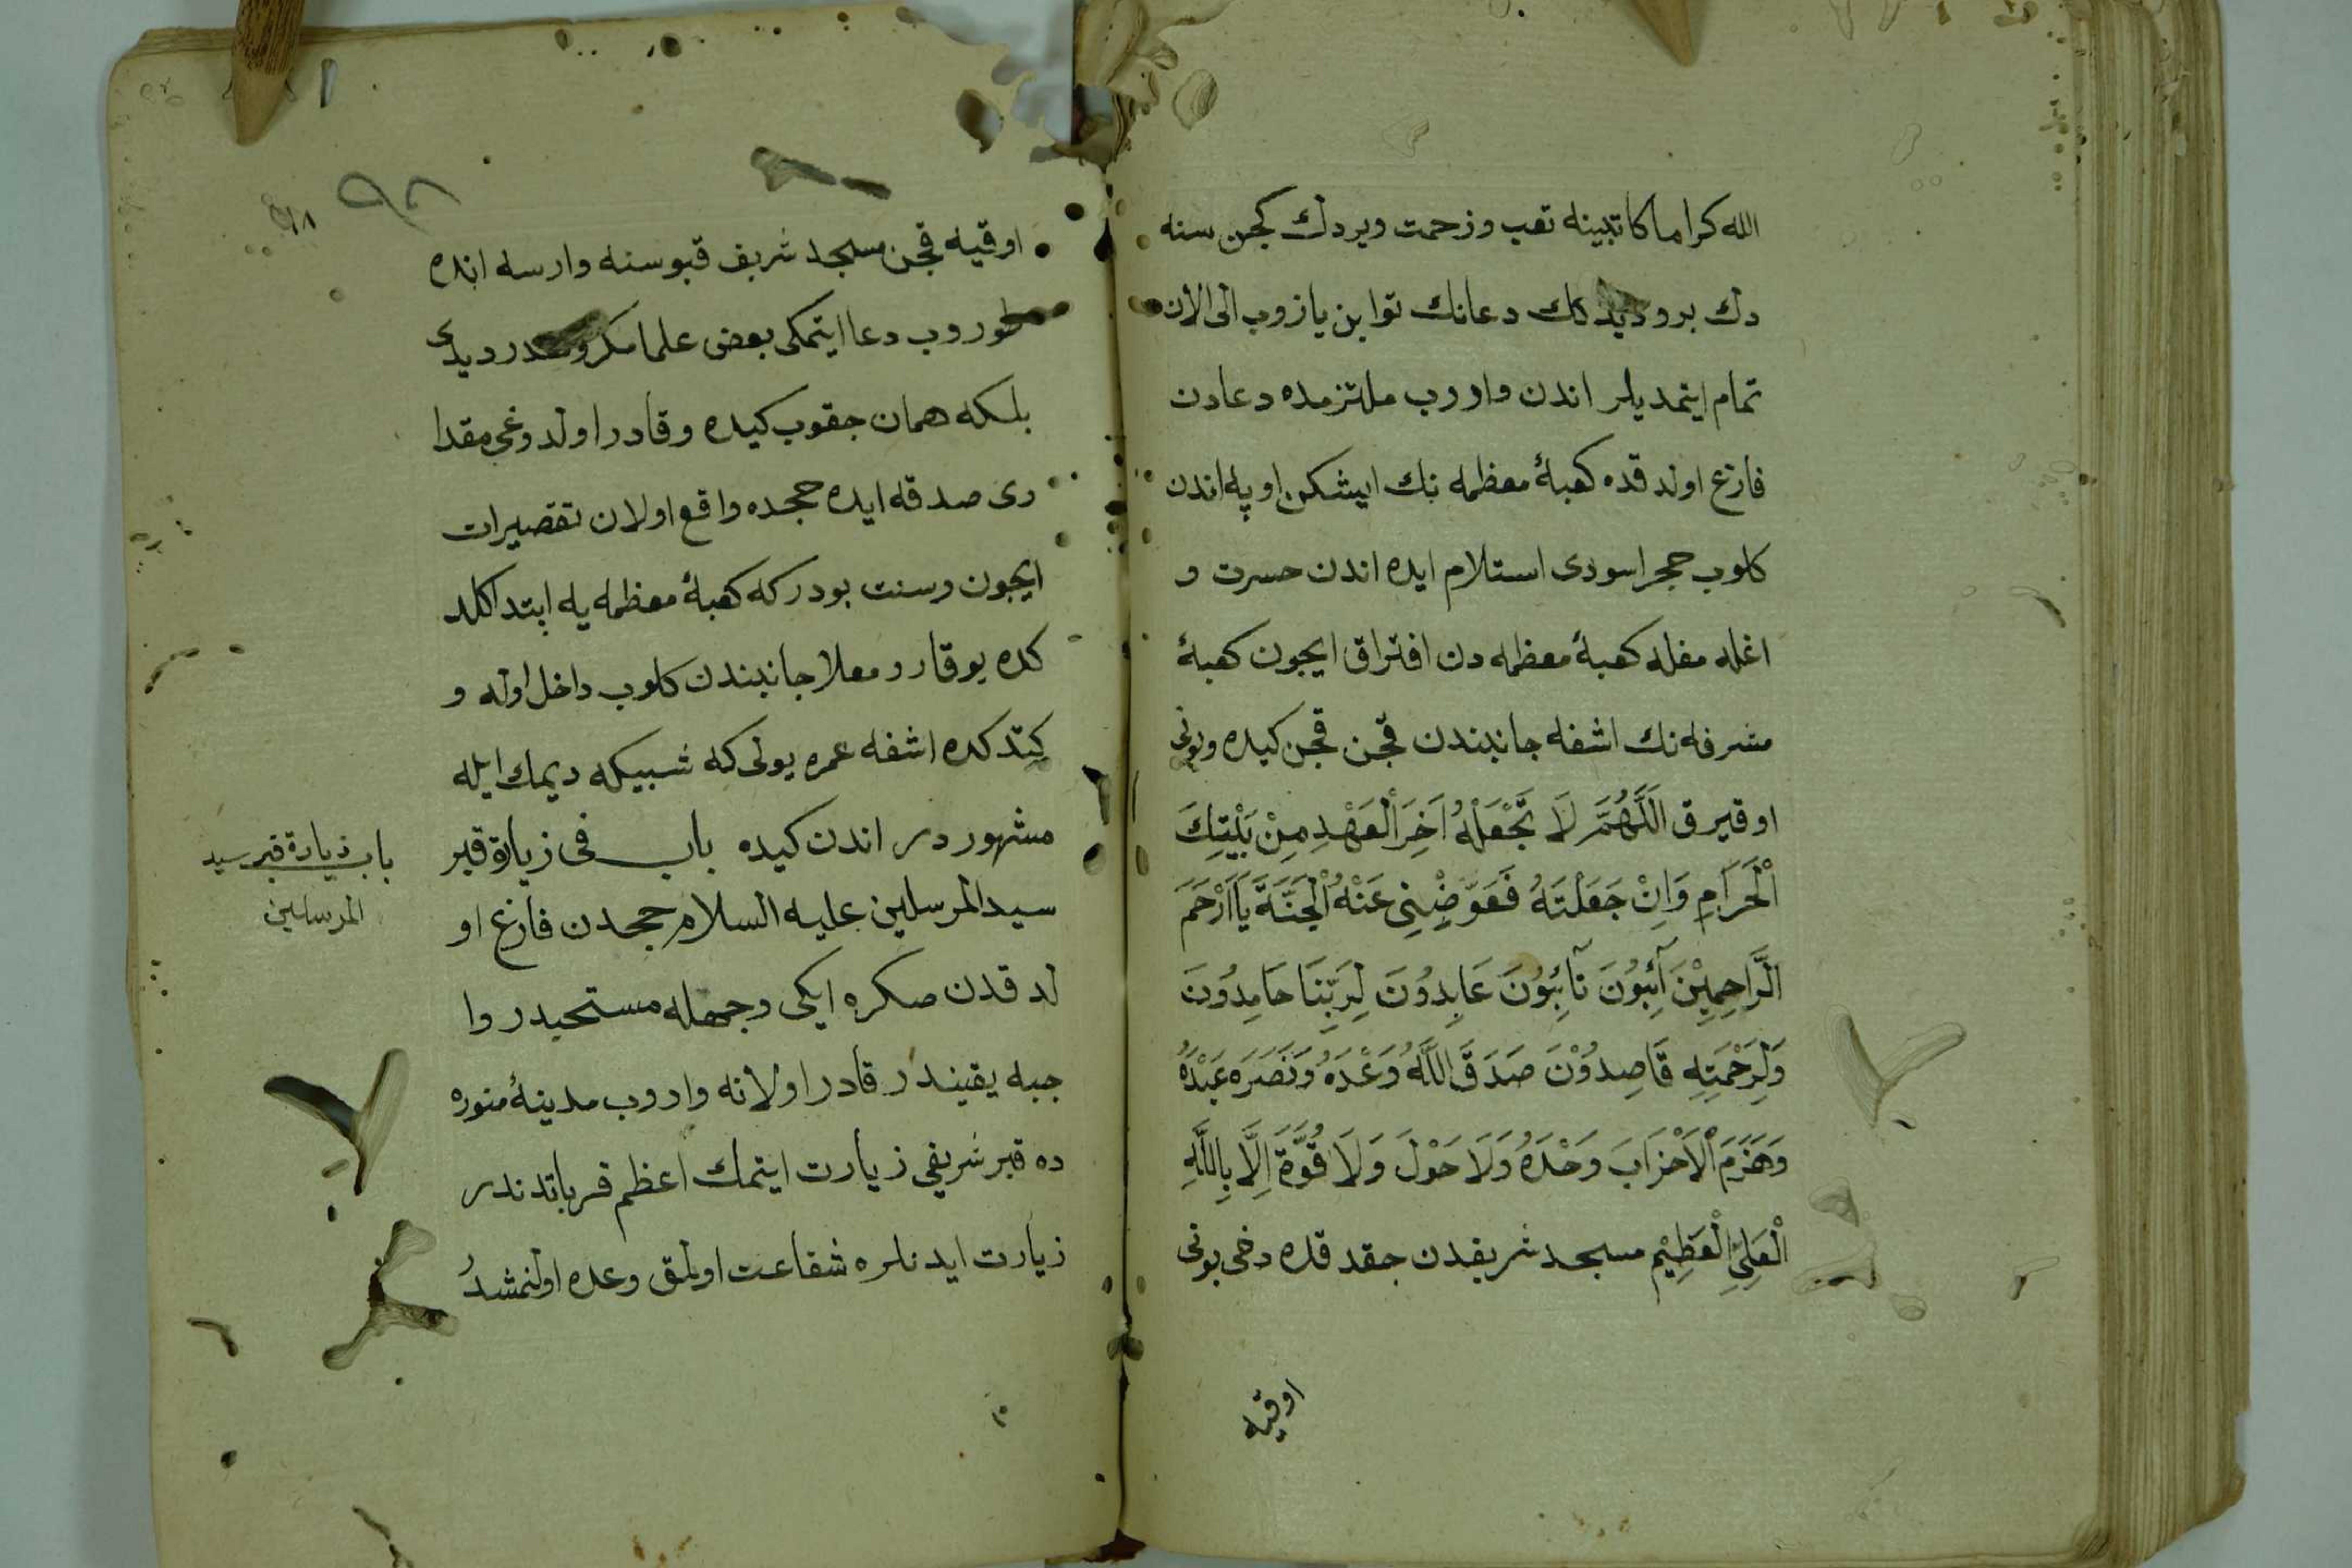 الله كراما كاتبينه تعب وزحمت ويردك كجن سنه
دك برو ديدكك دعانك ثوابن يازوب الى الان
تمام ايتمديلر اندن واروب ملتزمده دعادن
فارغ اولدقده كعبۀ معظمه نك ايشكن اوپه اندن
كلوب حجر اسودى استلام ايده اندن حسرت و
اغلمغله كعبۀ معظمه دن افتراق ايچون كعبۀ
مشرفه نك اشغه جانبندن قچن قچن كيده وبونى
اوقيرق اَللَّهُمَّ لَا تَجْعَلْهُ اٰخِرَ الْعَهْدِ مِنْ بَيْتِكَ
الْحَرَامِ وَاِنْ جَعَلْتَهُ فَعَوِّضْنِى عَنْهُ الْجَنَّةَ يَا اَرْحَمَ
الرَّاحِمِيْنَ آئِبُوْنَ تَآئِبُوْنَ عَابِدُوْنَ لِرَبِّنَا حَامِدُوْنَ
وَلِرَحْمَتِهِ قَاصِدُوْنَ صَدَقَ اللَّهُ وَعْدَهُ وَنَصَرَ عَبْدَهُ
وَهَزَمَ الْاَحْزَابَ وَحْدَهُ وَلَا حَوْلَ وَلَا قُوَّةَ اِلَّا بِاللَّهِ
الْعَلِىِّ الْعَظِيْمِ مسجد شريفدن چقدقده دخى بونى
اوقيه
٩٨
اوقيه قچن مسجد شريف قپوسنه وارسه انده
طوروب دعا ايتمكى بعض علما مكروهدر ديدى
بلكه همان چقوب كيده وقادر اولدوغى مقدا
رى صدقه ايده حجده واقع اولان تقصيرات
ايچون وسنت بودركه كعبۀ معظمه يه ابتدا كلد
كده يوقارو معلا جانبندن كلوب داخل اوله و
كتدكده اشغه عمره يولى كه شبيكه ديمك ايله
مشهوردر اندن كيده باب فى زيارة قبر
سيد المرسلين عليه السلام حجدن فارغ او
لدقدن صكره ايكى وجهله مستحبدر وا
جبه يقيندر قادر اولانه واروب مدينۀ منوره
ده قبر شريفى زيارت ايتمك اعظم قرباتدندر
زيارت ايدنلره شفاعت اولمق وعده اولنمشدر
باب زيارة قبر سيد
المرسلين